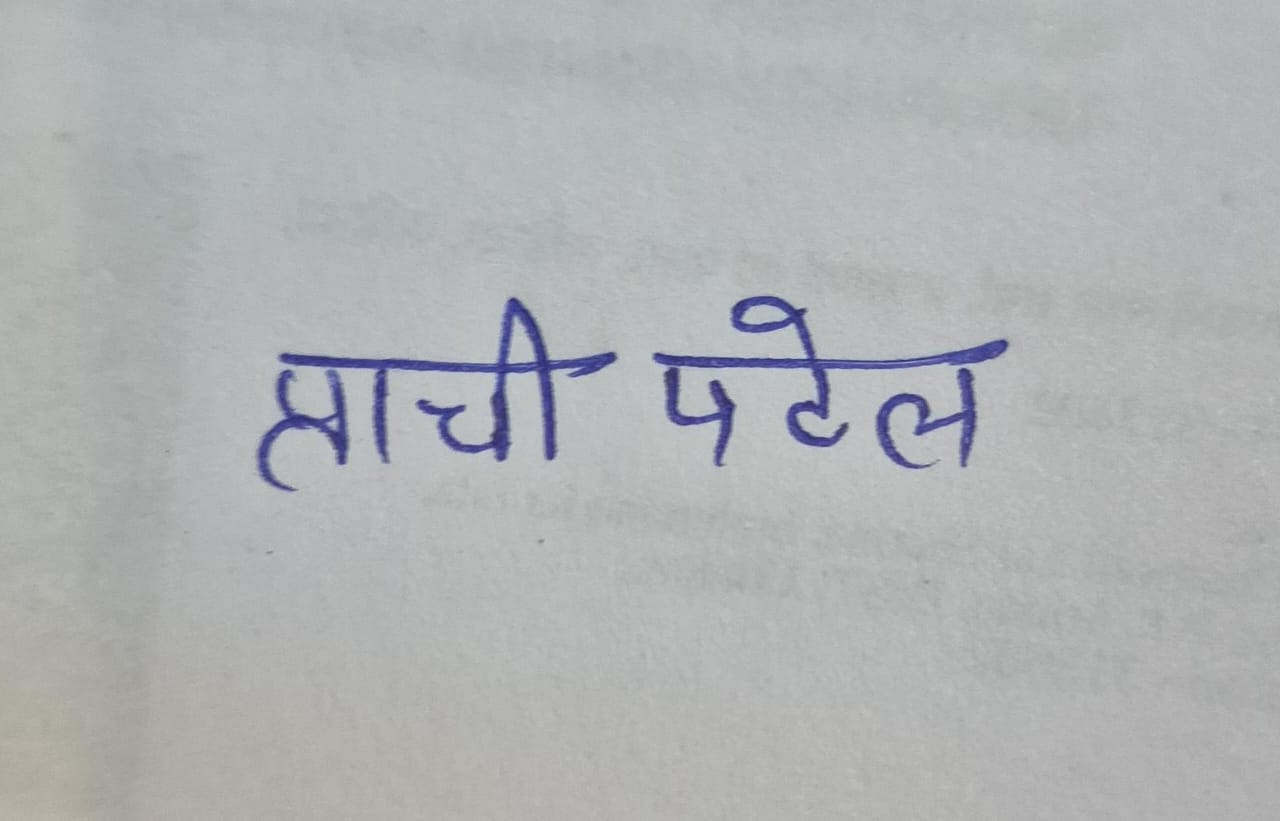 प्राची पटेल